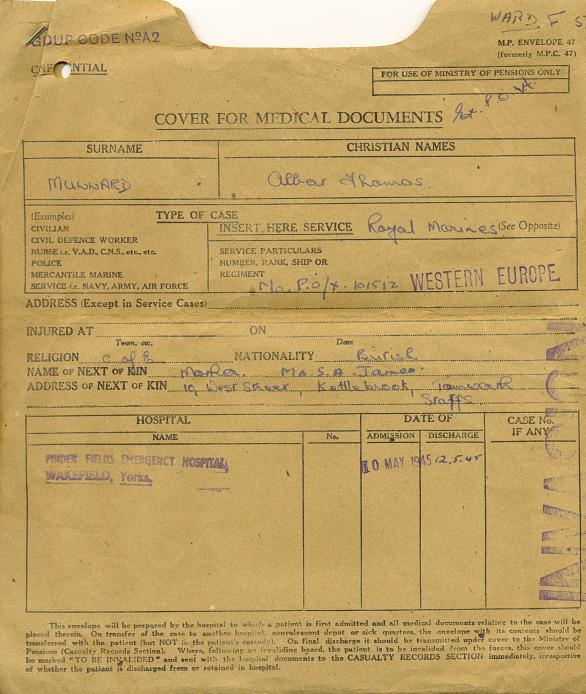 GOUP CODE NºA2
WARD F 5
M.P. ENVELOPE 47
(formerly M.P.C. 47)
FOR USE OF MINISTRY OF PENSIONS ONLY
COVER FOR MEDICAL DOCUMENTS
SURNAME
CHRISTIAN NAMES
MUNNARD
Albert Thomas.
(Examples)
TYPE OF CASE
CIVILIAN
CIVIL DEFENCE WORKER
NURSE i.e. V.A.D., C.N.S., etc., etc.
POLICE
MERCANTILE MARINE
SERVICE i.e. NAVY, ARMY, AIR FORCE
INSERT HERE SERVICE Royal Marines (See Opposite)
SERVICE PARTICULARS
NUMBER, RANK, SHIP OR
REGIMENT
Mo. P.O/X. 101512 WESTERN EUROPE.
ADDRESS (Except in Service Cases)
INJURED AT ON
Town, etc. Date
RELIGION C of E NATIONALITY British
NAME OF NEXT OF KIN Mother. Mrs. S.A. James.
ADDRESS OF NEXT OF KIN 10, West Street, Kettlebrook, Tamworth
Staffs
HOSPITAL
NAME
No.
DATE OF
ADMISSION
DISCHARGE
CASE No.
IF ANY
PINDER FIELDS EMERGENCY HOSPITAL,
WAKEFIELD, Yorks.
10 MAY 1945
12.5.45
INVASION
This envelope will be prepared by the hospital to which a patient is first admitted and all medical documents relating to the case will be
placed therein. On transfer of the case to another hospital, convalescent depot or sick quarters, the envelope with its contents should be
transferred with the patient (but NOT in the patient's custody). On final discharge it should be transmitted under cover to the Ministry of
Pensions (Casualty Records Section). Where, following an invaliding board, the patient is to be invalided from the forces, this cover should
be marked "TO BE INVALIDED" and sent with the hospital documents to the CASUALTY RECORDS SECTION immediately, irrespective
of whether the patient is discharged from or retained in hospital.